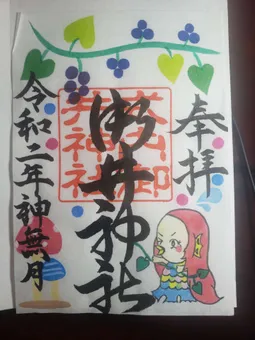 奉拝
御井神社
令和二年神無月
井神社